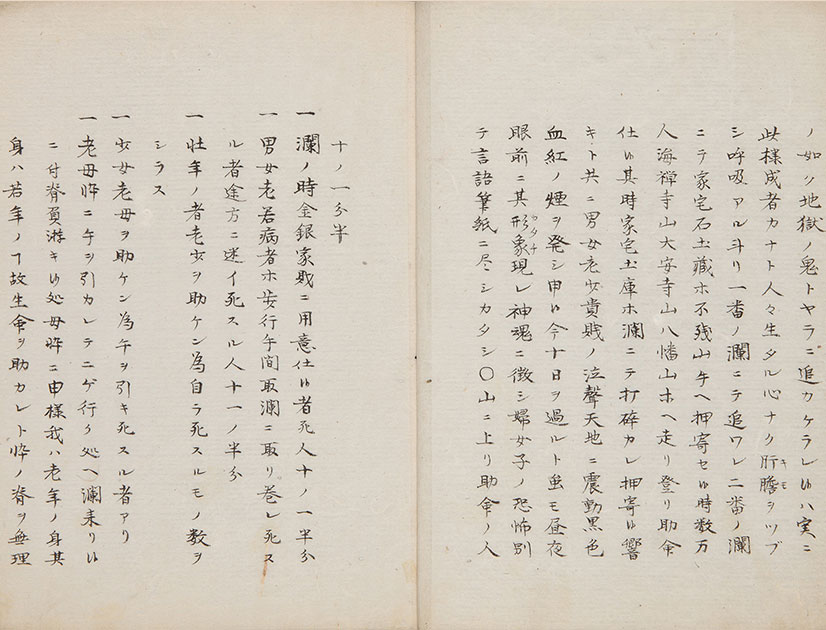 ノ如ク地獄ノ鬼トヤラニ追カケラレ候ハ実ニ
此様成者カナト人々生タル心ナク肝膽ヲツブ
キモ
シ呼吸アル斗リ一番ノ瀾ニテ追ワレ二番ノ瀾
ニテ家宅石土藏ホ不残山手ヘ押寄セ候時数万
人海禅寺山大安寺山八幡山ホヘ走リ登リ助命
仕候其時家宅土庫ホ瀾ニテ打碎カレ押寄候響
キト共ニ男女老少貴賎ノ泣聲天地ニ震動黒色
血紅ノ煙ヲ発シ申候今十日ヲ過ルト虽モ昼夜
眼前ニ其形象現レ神魂ニ徴シ婦女子ノ恐怖別
カタチ
テ言語筆紙ニ尽シカタシ〇山ニ上リ助命ノ人
十ノ一分半
一瀾ノ時金銀家財ニ用意仕候者死人十ノ一半分
一男女老若病者ホ歩行手間取瀾ニ取リ巻レ死ス
ル者途方ニ迷イ死スル人十一ノ半分
一壮年ノ者老少ヲ助ケン為自ラ死スルモノ数ヲ
シラス
一少女老母ヲ助ケン為手ヲ引キ死スル者アリ
一老母忰ニ手ヲ引カレテニゲ行ク処ヘ瀾来リ候
ニ付脊負游キ候処母忰ニ申様我ハ老年ノ身其
身ハ若年ノヿ故生命ヲ助カレト忰ノ脊ヲ無理